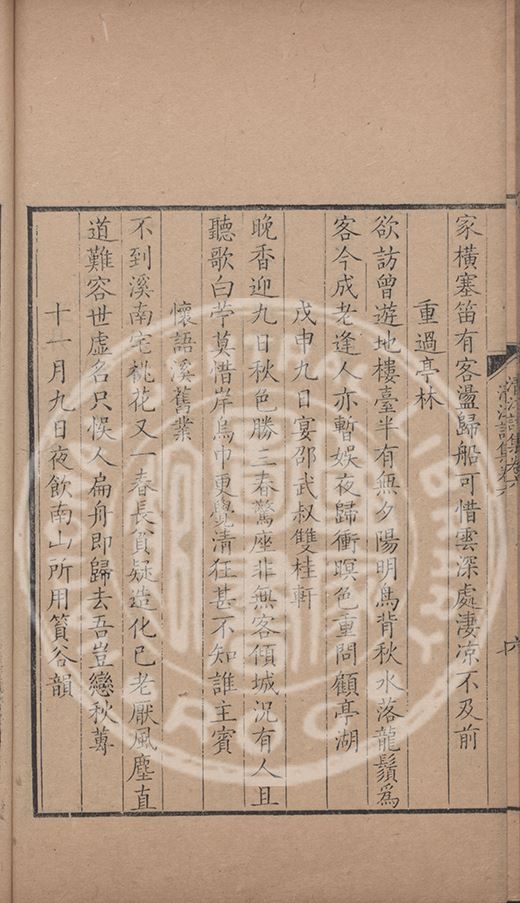 家橫塞笛有客盪歸船可惜雲深處淒凉不及前
重過亭林
欲訪曾遊地樓臺半有無夕陽明鳥背秋水落龍鬚爲
客今成老逢人亦暫娛夜歸衝暝色重問顧亭湖
戊申九日宴邵武叔雙桂軒
晚香迎九日秋色勝三春驚座非無客傾城況有人且
聽歌白苧莫惜岸烏巾更覺清狂甚不知誰主賓
懷語溪舊業
不到溪南宅桃花又一春長貧疑造化已老厭風塵直
道難容世虛名只悞人扁舟即歸去吾豈戀秋蓴
十一月九日夜飲南山所用篔谷韻
清江詩集卷六
六